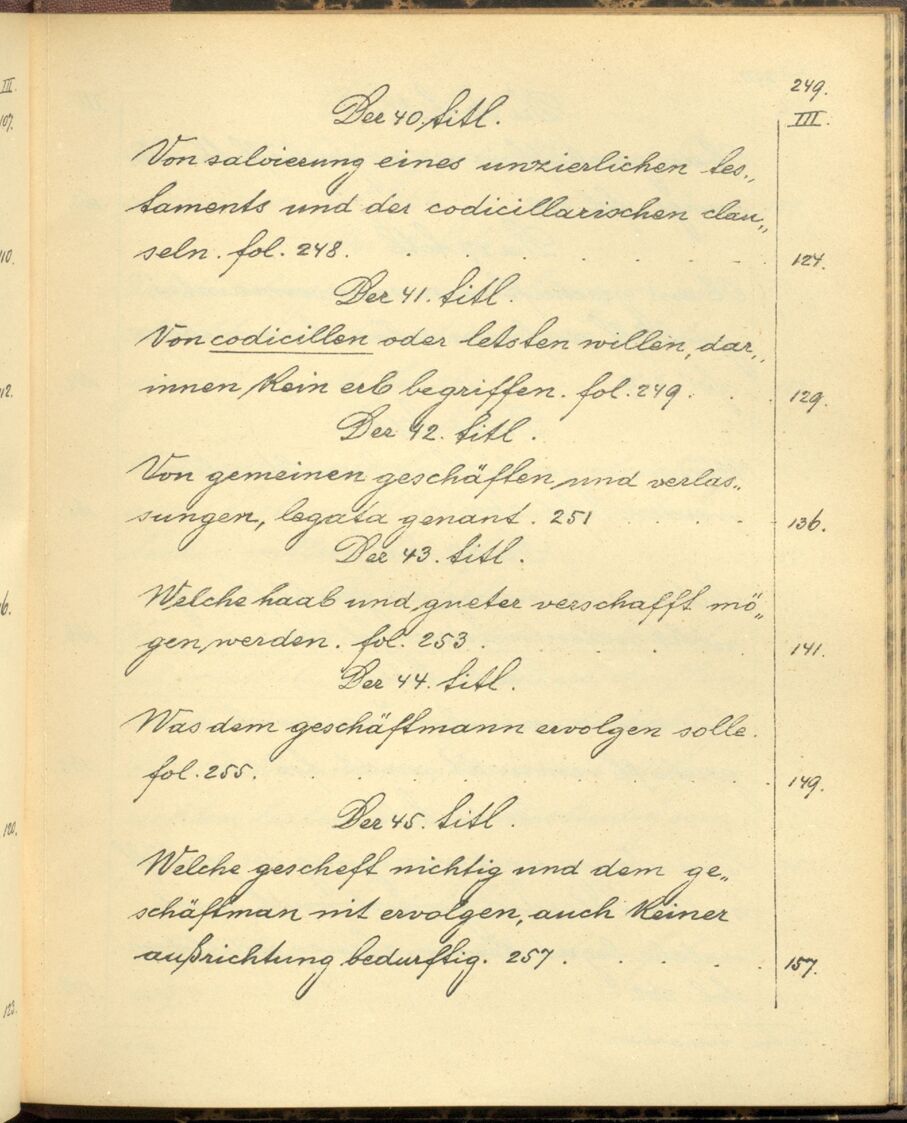 249.
III.
Der 40. titl.
Von salvierung eines unzierlichen tes„
taments und der codicillarischen clau„
seln. fol. 248. . . . . . . . 124.
Der 41. titl.
Von codicillen oder letsten willen, dar„
innen kein erb begriffen. fol. 249. . . 129.
Der 42. titl.
Von gemeinen geschäften und verlas„
sungen, legata genant. 251 . . . . 136.
Der 43. titl.
Welche haab und gueter verschafft mö„
gen werden. fol. 253 . . . . . . 141.
Der 44. titl.
Was dem geschäftmann ervolgen solle.
fol. 255. . . . . . . . . 149.
Der 45. titl.
Welche gescheft nichtig und dem ge„
schäftman nit ervolgen, auch keiner
außrichtung bedurftig. 257 . . . . . 157.
III.
107.
110.
112.
6.
120.
123.